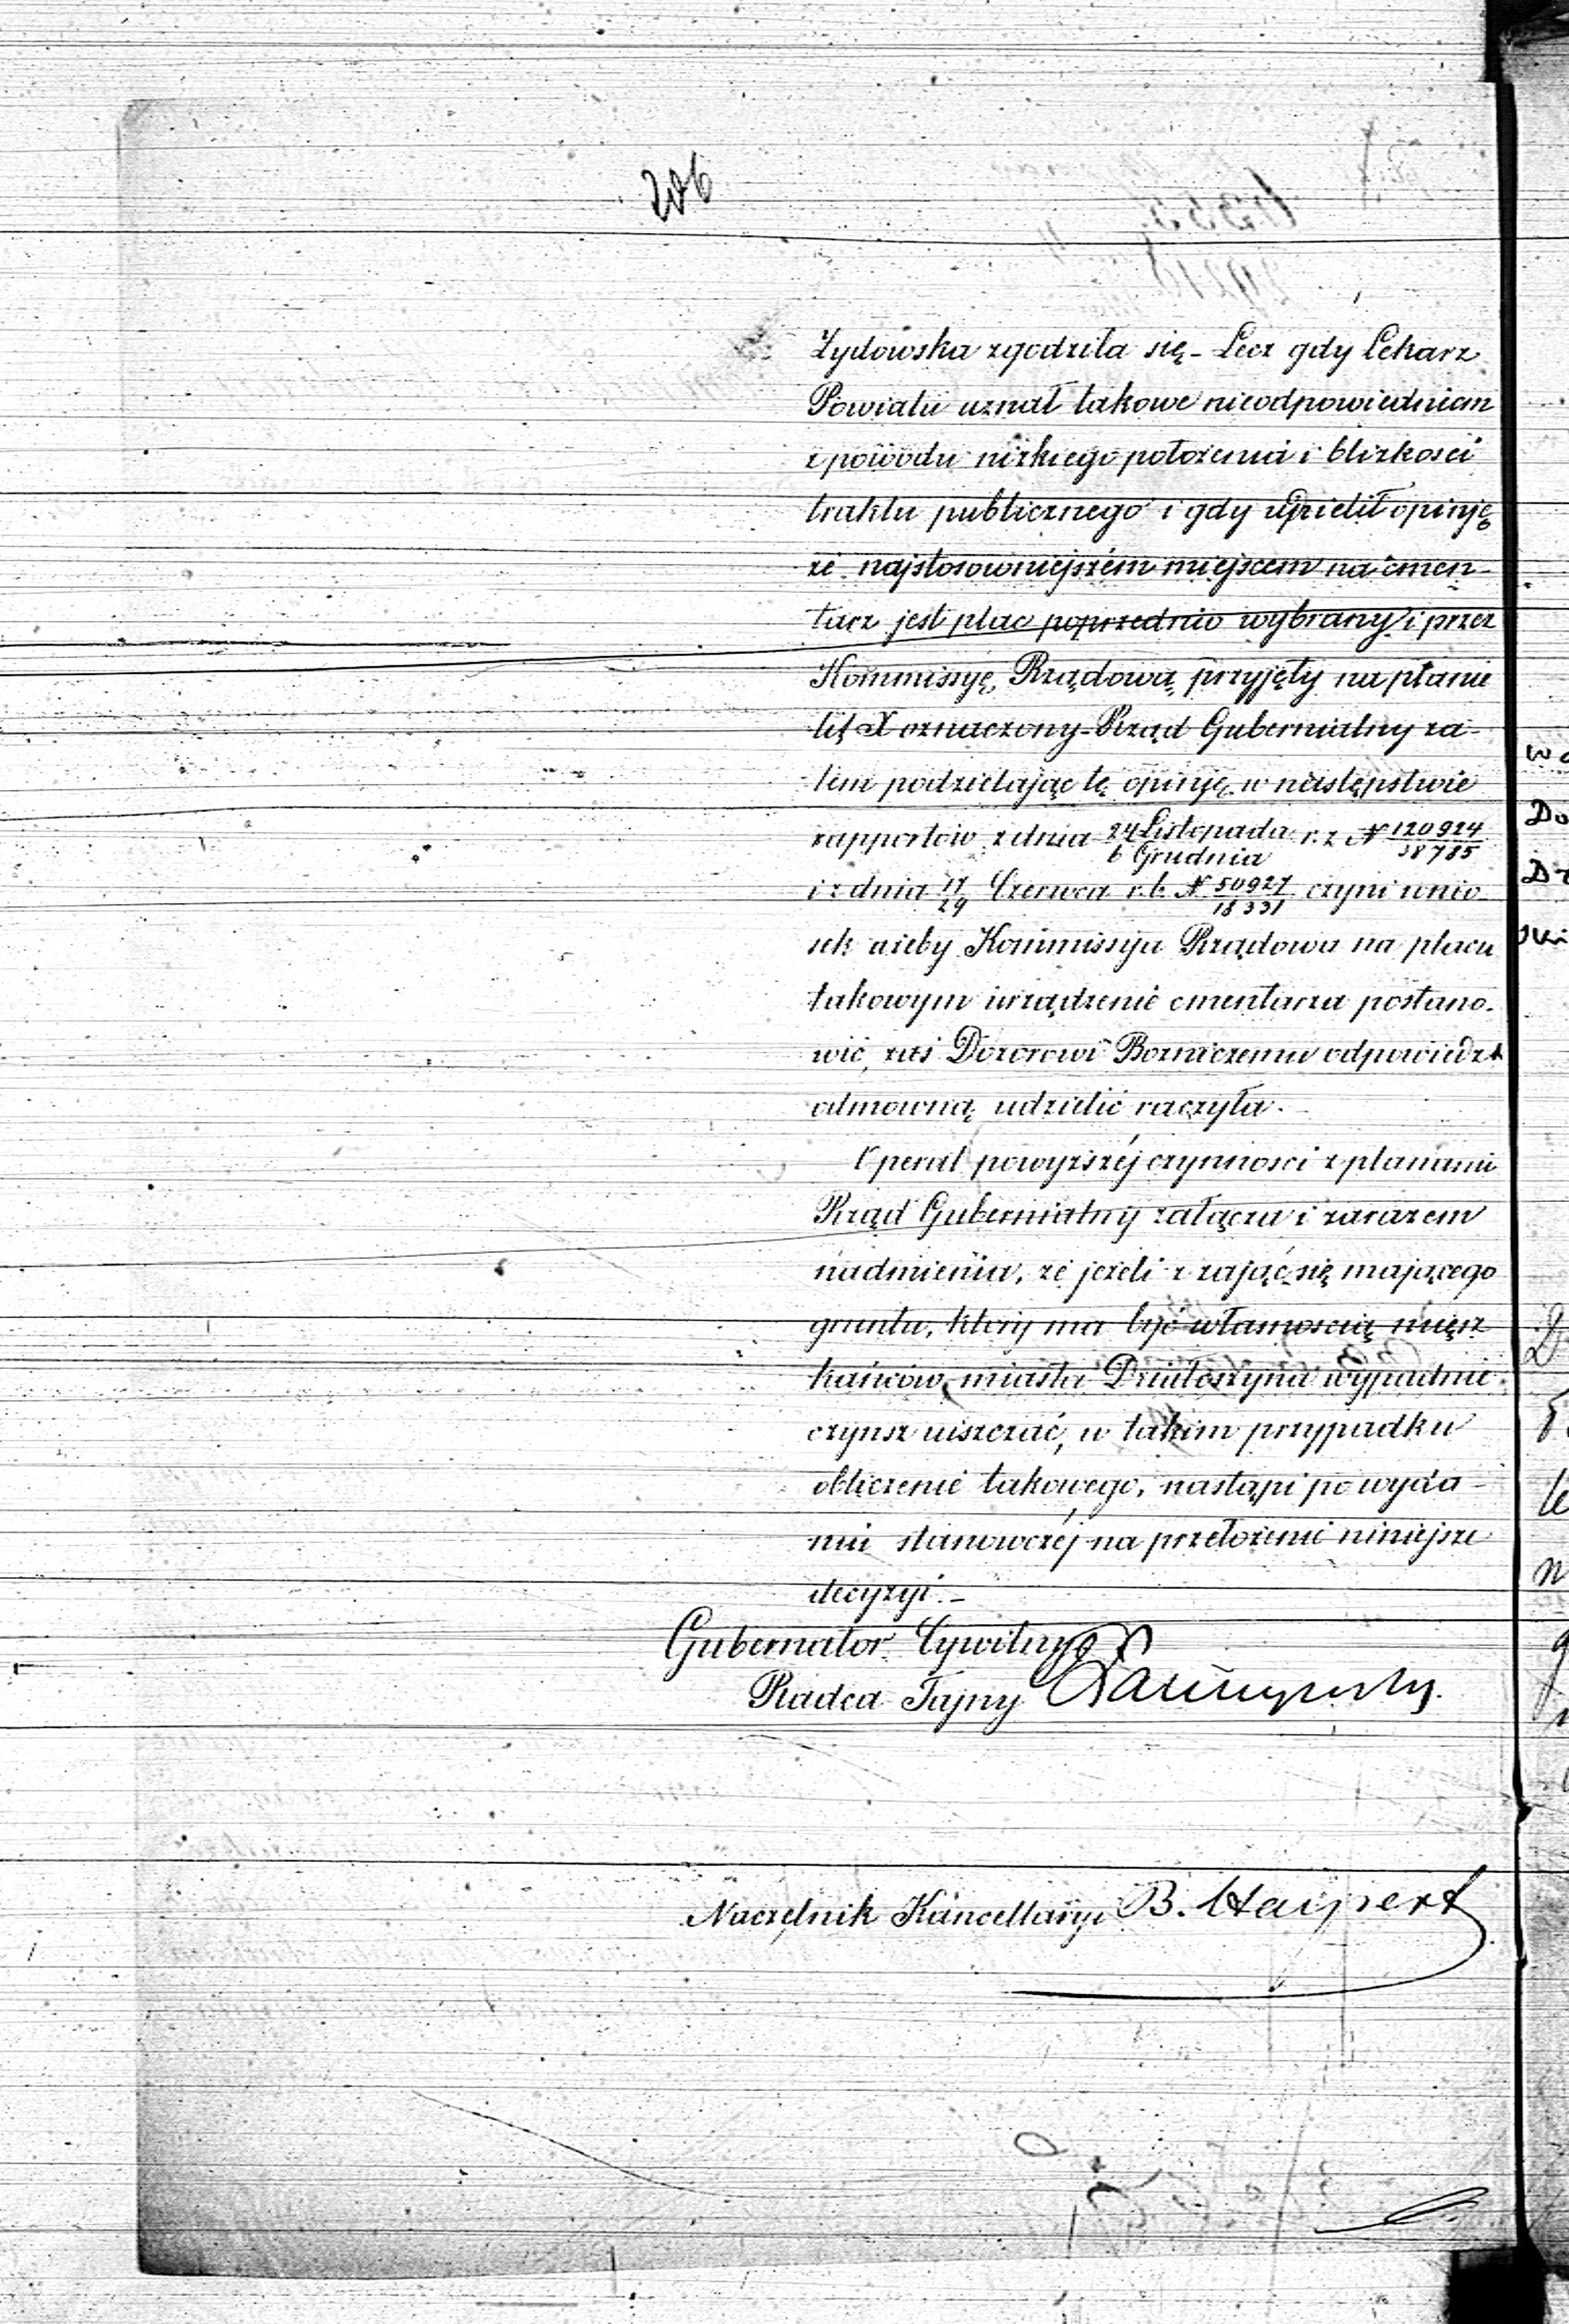 206
Żydowska zgodziła się – Lecz gdy Lekarz
Powiatu uznał takowe nieodpowiedniem
z powodu nizkiego położenia i blizkości
traktu publicznego i gdy udzielił opinję
że najstosowniejszém miejscem na cmen-
tarz jest plac poprzednio wybrany i przez
Kommissyę Rządową przyjęty na planie
lit X oznaczony – Rząd Gubernialny za-
tem podzielając tę opinję w następstwie
rapportów z dnia 24 Listopada / 6 Grudnia r. z. N 120924 / 38785
i z dnia 17/29 Czerwca r. b. N 50927 / 18331 czyni wnio-
sek ażeby Kommissya Rządowa na placu
takowym urządzenie cmentarza postano-
wić, zaś Dozorowi Bożniczemu odpowiedź
odmowną udzielić raczyła.
Operat powyższéj czynności z planami
Rząd Gubernialny załącza i zarazem
nadmienia, że jeżeli z zająć się mającego
gruntu, który ma być własnością miesz
kańców miasta Działoszyna wypadnie
czynsz uiszczać, w takim przypadku
obliczenie takowego, nastąpi po wyda-
niu stanowczéj na przełożenie niniejsze
decyzyi. –
Gubernator Cywilny
Radca Tajny
Naczelnik Kancellaryi B.